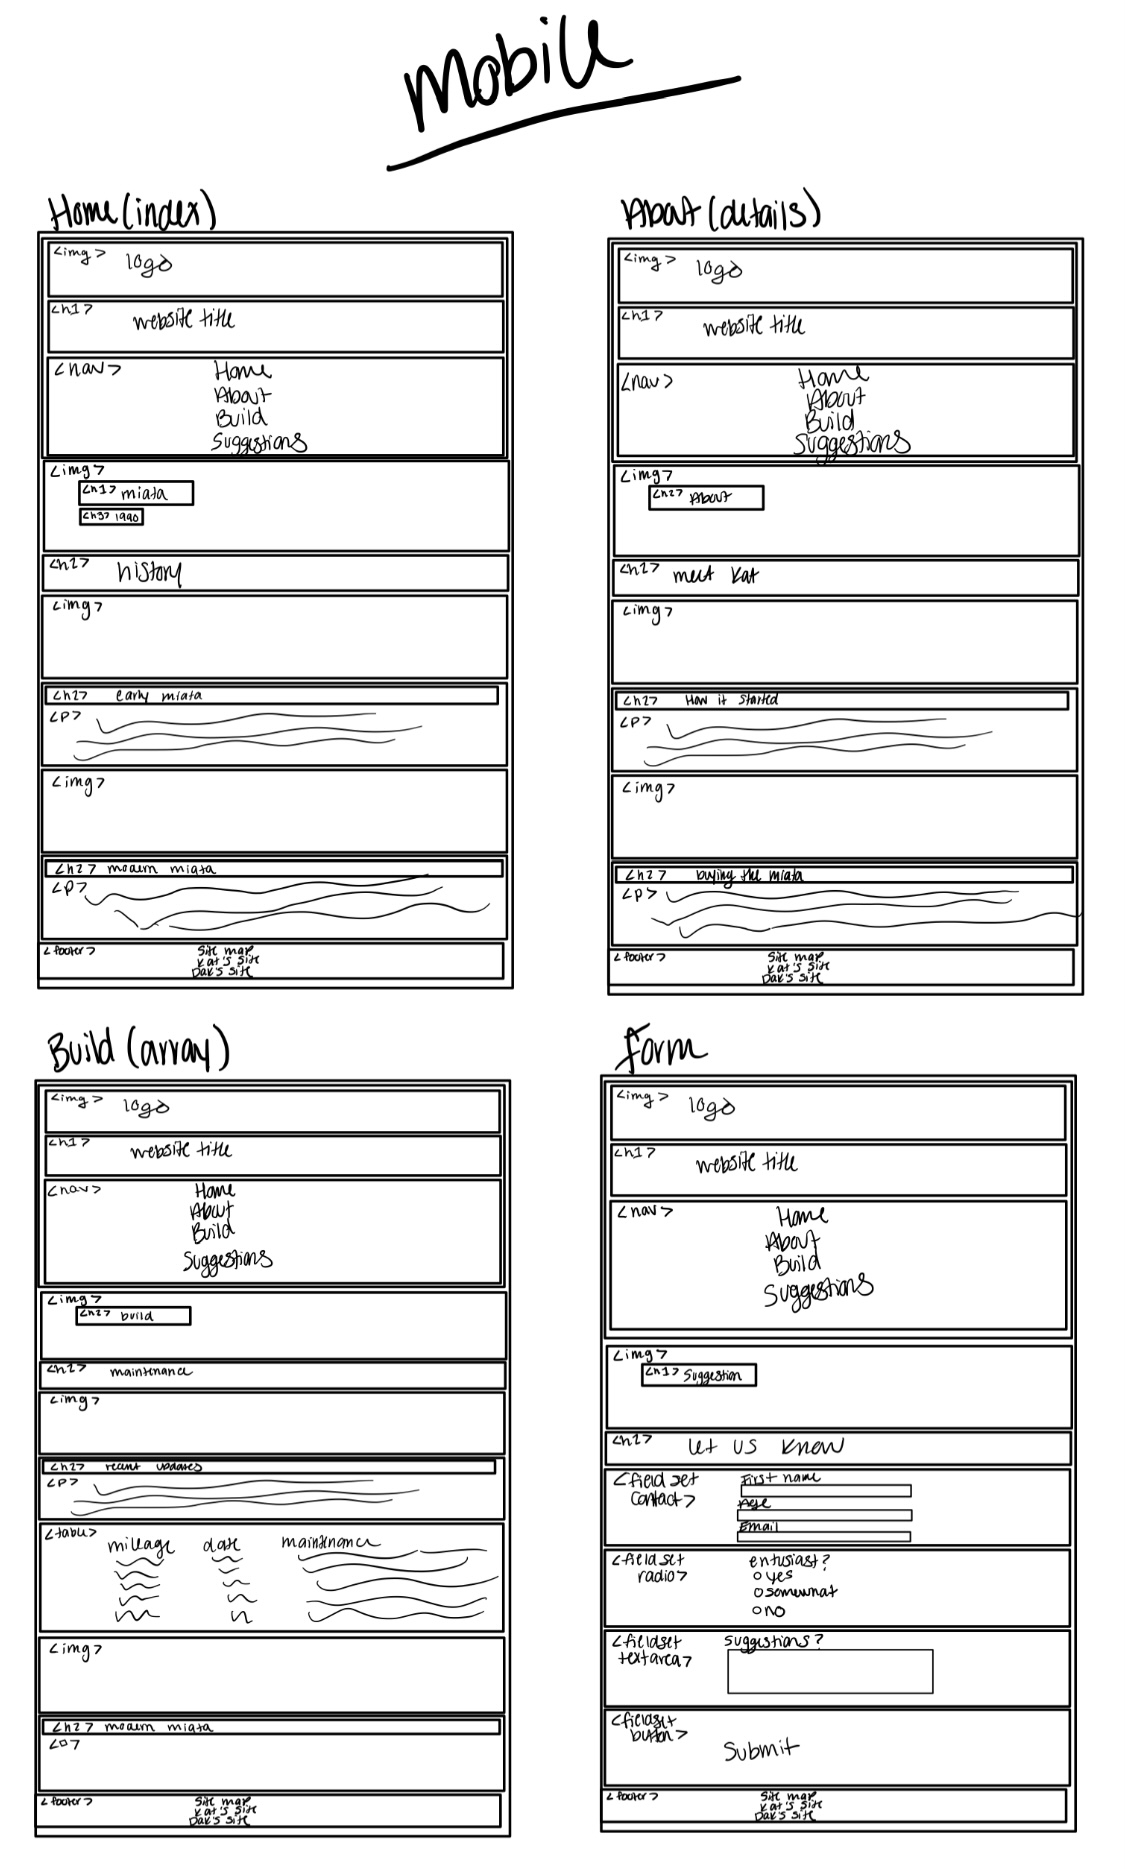 mobile
Home (index)
<img> logo
<h1> website title
<nav> Home
About
Build
Suggestions
<img>
<h1> miata
<h3> 1990
<h2> history
<img>
<h2> early miata
<p>
<img>
<h2> modern miata
<p>
<footer> Site map
Kat's Site
Dak's Site
About (details)
<img> logo
<h1> website title
<nav> Home
About
Build
Suggestions
<img>
<h2> About
<h2> meet Kat
<img>
<h2> How it started
<p>
<img>
<h2> buying the miata
<p>
<footer> Site map
Kat's Site
Dak's Site
Build (array)
<img> logo
<h1> website title
<nav> Home
About
Build
Suggestions
<img>
<h2> build
<h2> maintenance
<img>
<h2> recent updates
<p>
<table> mileage date maintenance
<img>
<h2> modern miata
<footer> Site map
Kat's Site
Dak's Site
form
<img> logo
<h1> website title
<nav> Home
About
Build
Suggestions
<img>
<h1> Suggestion
<h2> let us know
<field set contact> First name
Age
Email
<fieldset radio> entusiast?
yes
somewhat
no
<fieldset textarea> Suggestions?
<fieldset button> Submit
<footer> Site map
Kat's Site
Dak's Site